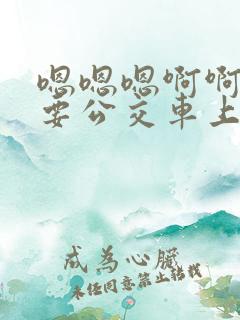 嗯嗯嗯啊啊
要公交車上
成為心臟
未经同意禁止转载